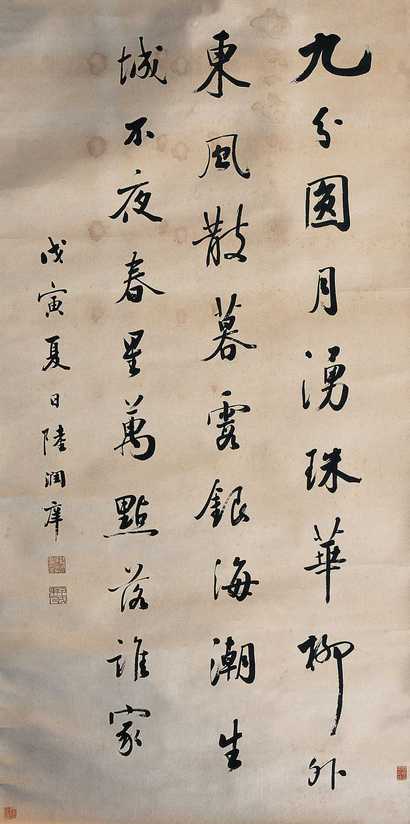 九分圓月湧珠華柳外
東風散暮霞銀海潮生
城不夜春星萬點落誰家
戊寅夏日陸潤庠